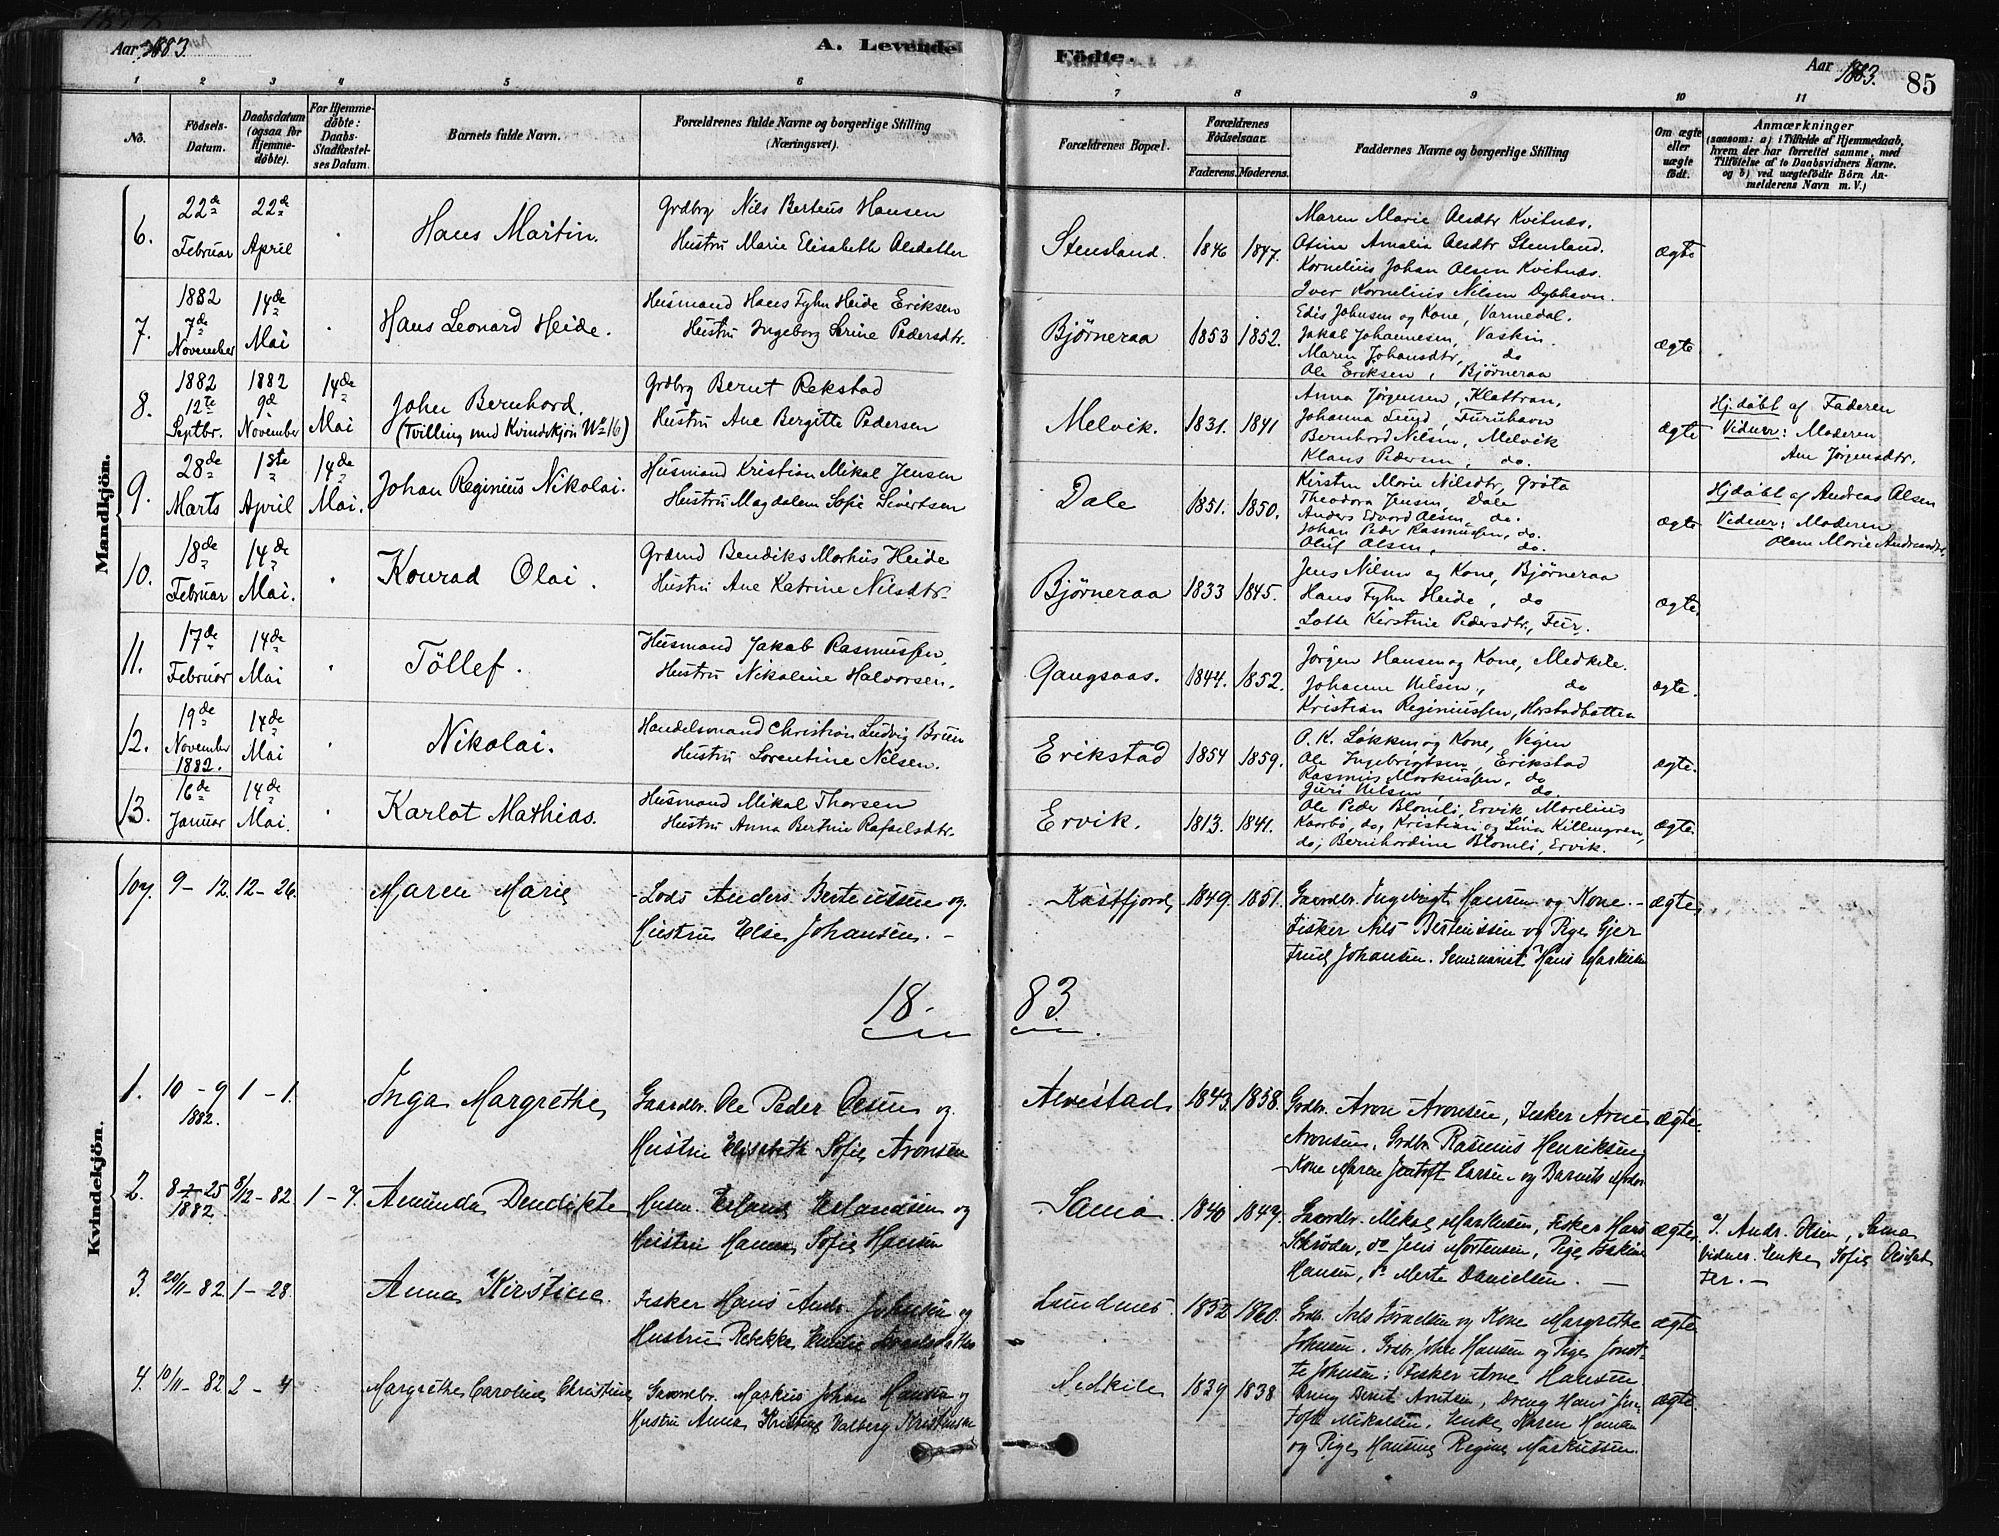 Aar 1883.
A. Levende
Födte.
Aar 1883.
85
1 2 3 4 5 6 7 8 9 10 11
No.
Födsels-Datum.
Daabsdatum (ogsaa for Hjemmedöbte).
For Hjemmedöbte: Daabs-Stadfæstelses Datum.
Barnets fulde Navn.
Forældrenes fulde Navne og borgerlige Stilling
(Næringsvei).
Forældrenes Bopæl.
Forældrenes Födselsaar.
Faderens. Moderens.
Faddernes Navne og borgerlige Stilling
Om ægte eller uægte födt.
Anmærkninger
(saasom: a) i Tilfælde af Hjemmedaab,
hvem der har forrettet samme, med
Tilföielse af to Daabsvidners Navne.
og b) ved uægtefödte Börn An-
melderens Navn m. V.)
Mandkjön.
6. 22de Februar 22de April Hans Martin.
Grdbrg Nils Berteus Hansen
Hustru Marie Elisabeth Olsdatter
Stensland. 1846 1847.
Maren Marie Olsdtr Kvitnæs.
Otine Amalia Olsdtr Stensland.
Kornelius Johan Olsen Kvitnæs.
Iver Kornelius Nilsen Dybhavn.
ægte
7. 1882 7de November 14de Mai Hans Leonard Heide.
Husmand Hans Fyhn Heide Eriksen
Hustru Ingeborg Serine Pedersdtr.
Bjørneraa 1853 1852.
Edis Johnsen og Kone, Varmedal.
Jakob Johannesen, Vaskin.
Maren Johansdtr, do
Ole Eriksen, Bjørneraa
ægte
8. 1882 12te Septbr. 1882 9de November 14de Mai John Bernhard.
(Tvilling med Kvindekjøn No 16)
Grdbrg Bernt Rekstad
Hustru Ane Bergitte Pedersen
Melvik. 1831. 1841
Anna Jørgensen, Klattran.
Johanna Lund, Furuhavn
Bernhard Nilsen, Melvik
Klaus Pedersen, do.
ægte
Hj.døbt af Faderen
Vidner: Moderen
Ane Jørgensdtr.
9. 28de Marts 1ste April 14de Mai. Johan Reginius Nikolai.
Husmand Kristian Mikal Jensen
Hustru Magdalena Sofie Sivertsen
Dale 1851. 1850.
Kirsten Marie Nilsdtr, Grøta
Theodora Jensen, Dale
Anders Edvard Olsen, do.
Johan Peder Rasmussen, do.
Oluf Olsen, do.
ægte
Hj.døbt af Andreas Olsen
Vidner: Moderen
Olene Marie Andreasdtr.
10. 18de Februar 14de Mai. Konrad Olai.
Grdmd Bendiks Morkus Heide
Hustru Ane Katrine Nilsdtr.
Bjørneraa 1833 1845.
Jens Nilsen og Kone, Bjørneraa
Hans Fyhn Heide, do
Lotte Kirstine Pedersdtr, Fur.
ægte.
11. 17de Februar 14de Mai Töllef.
Husmand Jakob Rasmussen,
Hustru Nikoline Halvorsen.
Gangsaas. 1844. 1852.
Jørgen Hansen og Kone, Medkile.
Johanne Nilsen, do
Kristian Reginiussen, Harstadbotten
ægte.
12. 19de November 1882. 14de Mai Nikolai.
Handelsmand Christian Ludvig Bruun
Hustru Lorentine Nilsen.
Erikstad 1854 1859.
O. K. Løkken og Kone, Vigen
Ole Ingebrigtsen, Erikstad
Rasmus Markussen, do
Guri Nilsen do.
ægte.
13. 16de Januar 14de Mai. Karlot Mathias.
Husmand Mikal Thorsen
Hustru Anna Bertine Rafaelsdtr.
Ervik. 1813. 1841.
Ole Peder Blomli, Ervik Morelius
Kaarbø, do, Kristian og Lina Killengren,
do; Bernhardine Blomli, Ervik.
ægte.
Kvindekjön.
107. 9-12. 12-26. Maren Marie
Lods Anders Berteussen og
Hustru Else Johansen.
Kastfjord 1849. 1851.
Gaardbr. Ingebrigt Hansen og Kone.
Fisker Nils Berteussen og Pige Gjer
trud Johansen. Seminarist Hans Markusen
ægte
18 83.
1. 10-9 1882. 1-1. Inga Margrethe
Gaardbr. Ole Peder Olsen og
Hustru Elisabeth Sofie Aronsen
Alvestad 1843. 1858.
Grdbr. Aron Aronsen, Fisker Arne
Aronsen, Grdbr Rasmus Henriksen,
Kone Maren Jentoft Larsen og Barnets Moder
ægte.
2. 8-25 1882. 8/12-82. 1-7. Amunda Bendikte
Husm. Erland Erlandsen og
Hustru Hanna Sofie Hansen
Sama 1840 1849.
Gaardbr. Mikal Markusen, Fisker Hans
Schrøder, do Jens Mortensen, Pige
Hansen, do Merte Danielsen.
ægte
a/ Andr. Olsen, Sama
Vidner. Enke Sofie Olsdat
ter.
3. 20/11-82 1-28. Anna Kirstine
Fisker Hans Andr. Johnsen og
Hustru Rebekka Emilie
Lundenes. 1852 1860.
Grdbr. Nils Isra­elsen og Kone Margrethe
Johnsen. Grdbr. John Hansen og Pige
Johnsen; Fisker Arne Hansen
ægte
4. 10/11-82 2-4 Margrethe Caroline Christine
Gaardbr. Markus Johan Hansen og
Hustru Anna Kristine Valberg Kristensen
Medkile 1839 1838
Dreng Bernt Arntsen, Dreng Hans Jen
toft Mikalsen, Enke Karen Hansen
og Pige Hansine Regine Markussen.
ægte.